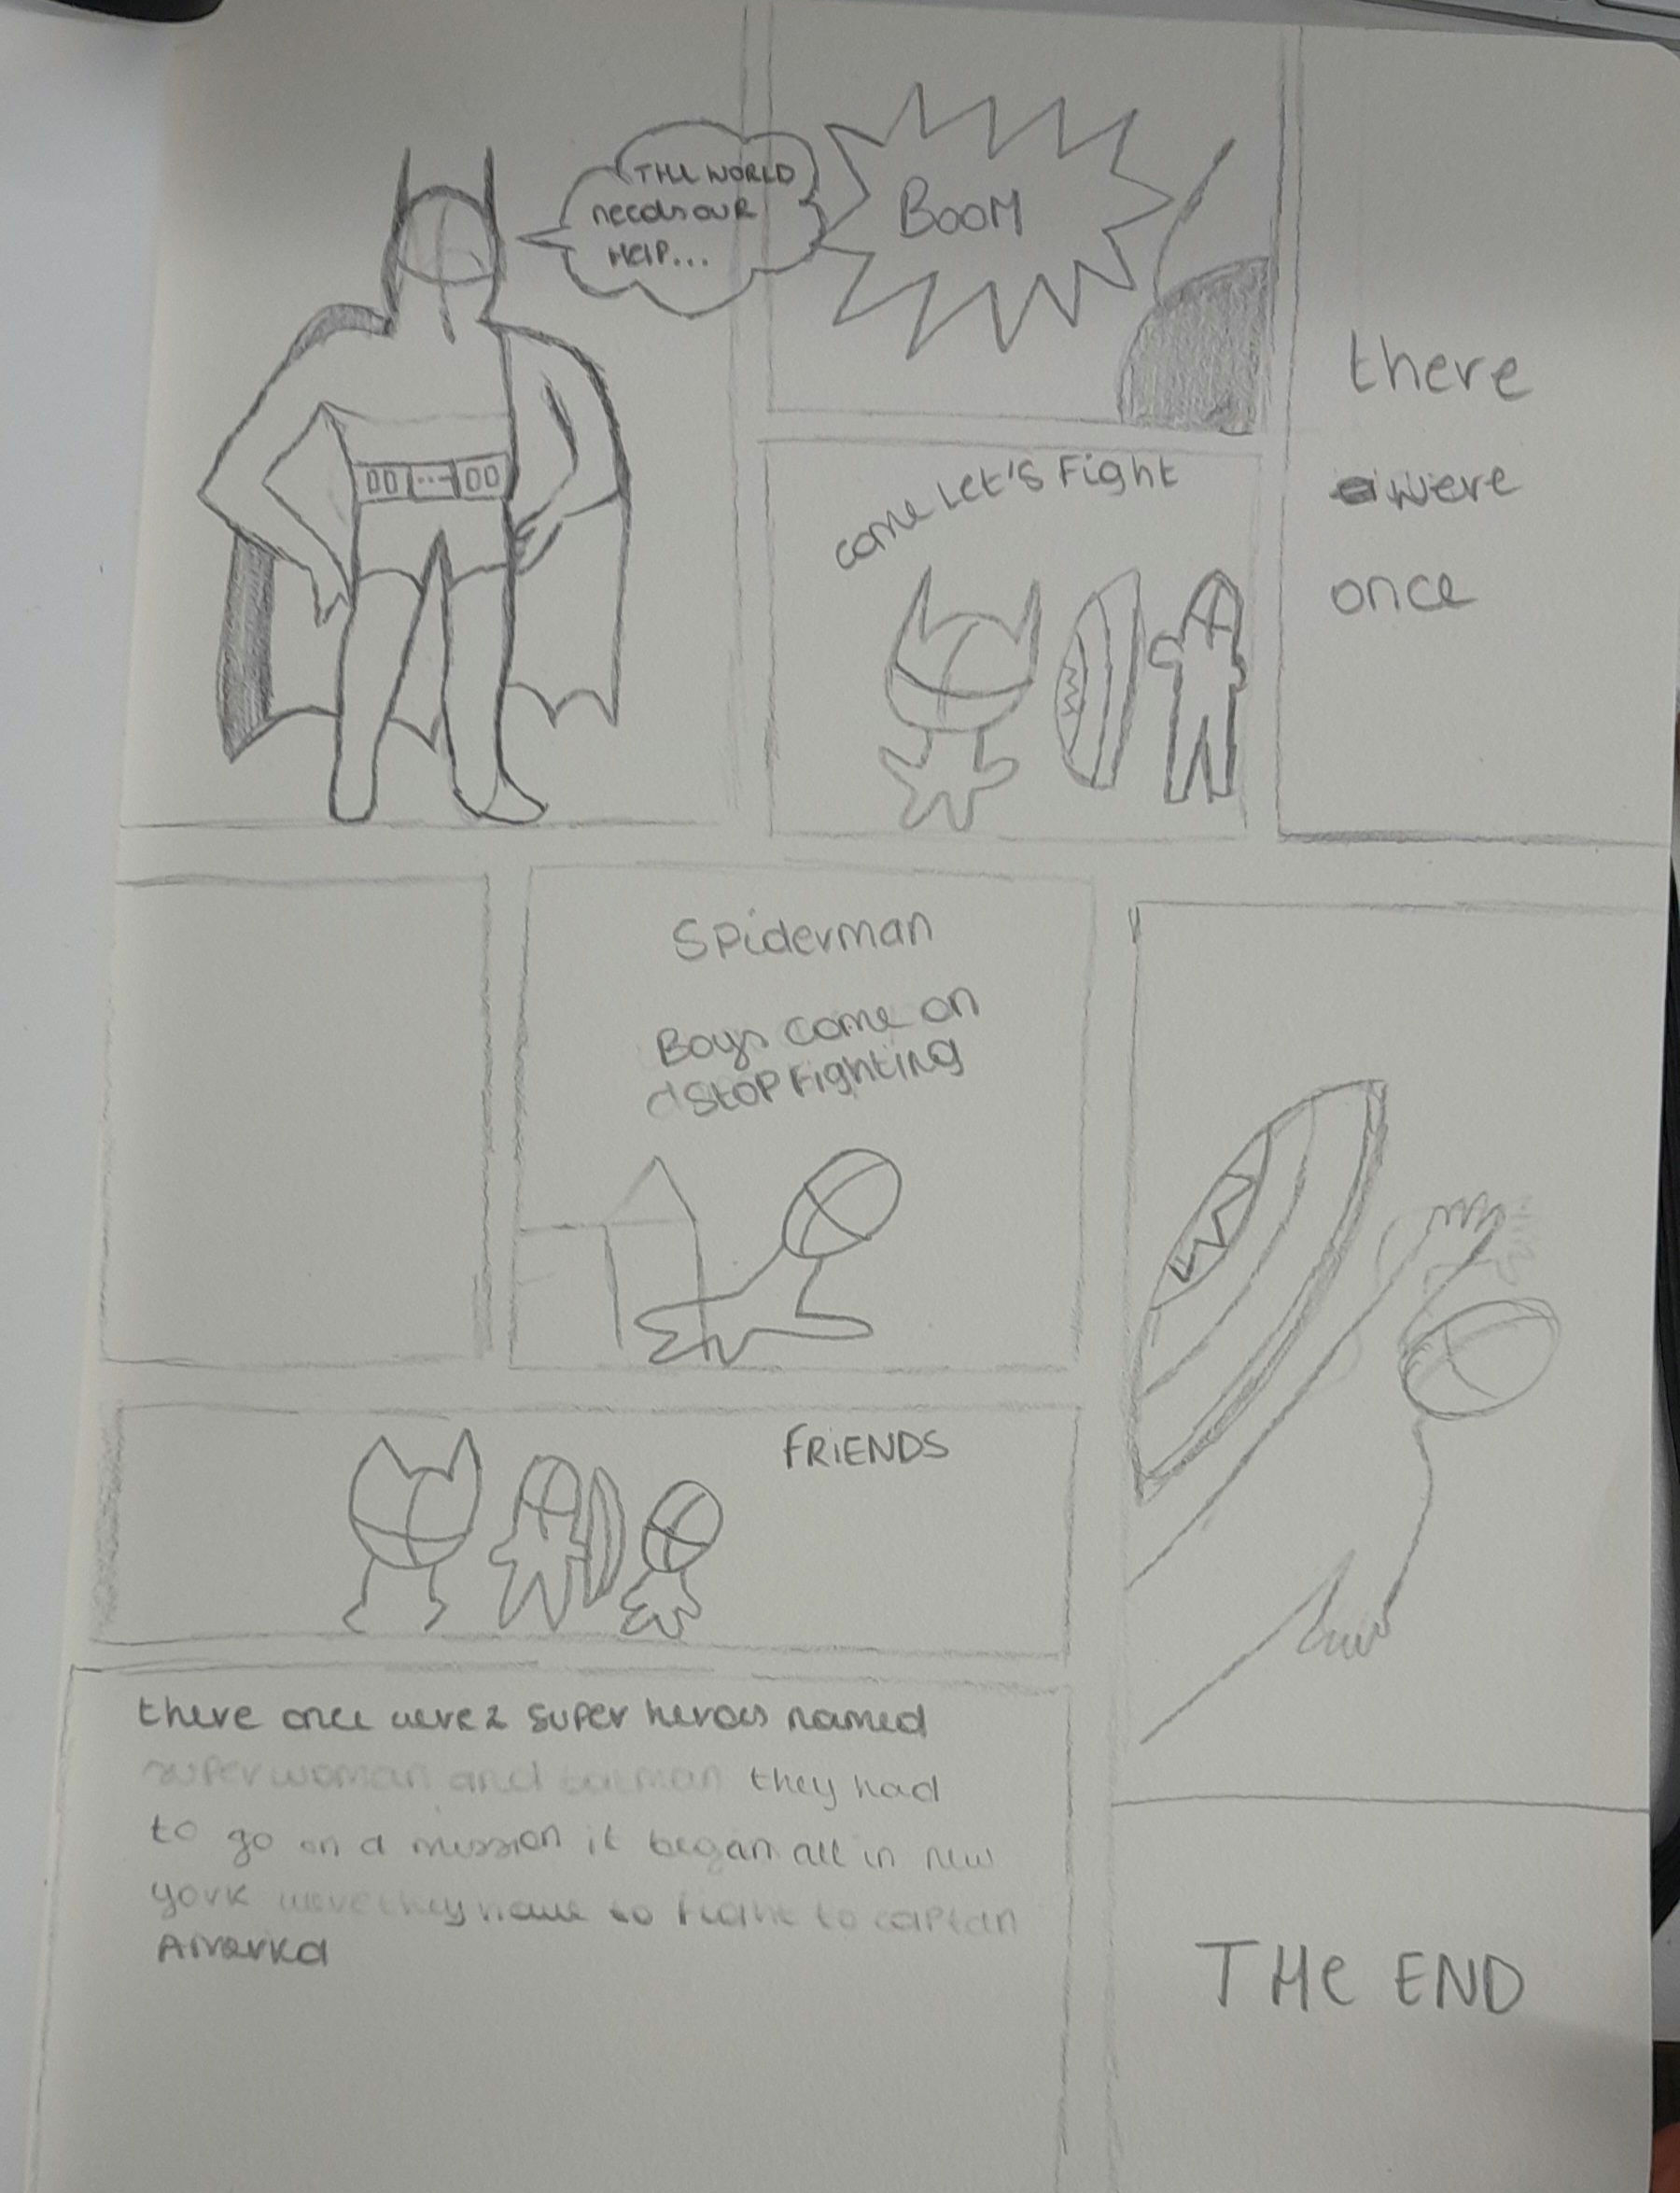 THE WORLD
needs our
HElP...
BOOM
there
were
once
come Let's Fight
Spiderman
Boys come on
Stop Fighting
FRiENDS
there once were 2 super heroes named
superwoman and batman they had
to go on a mission it began all in new
york were they have to fight to captan
Amarka
THe END